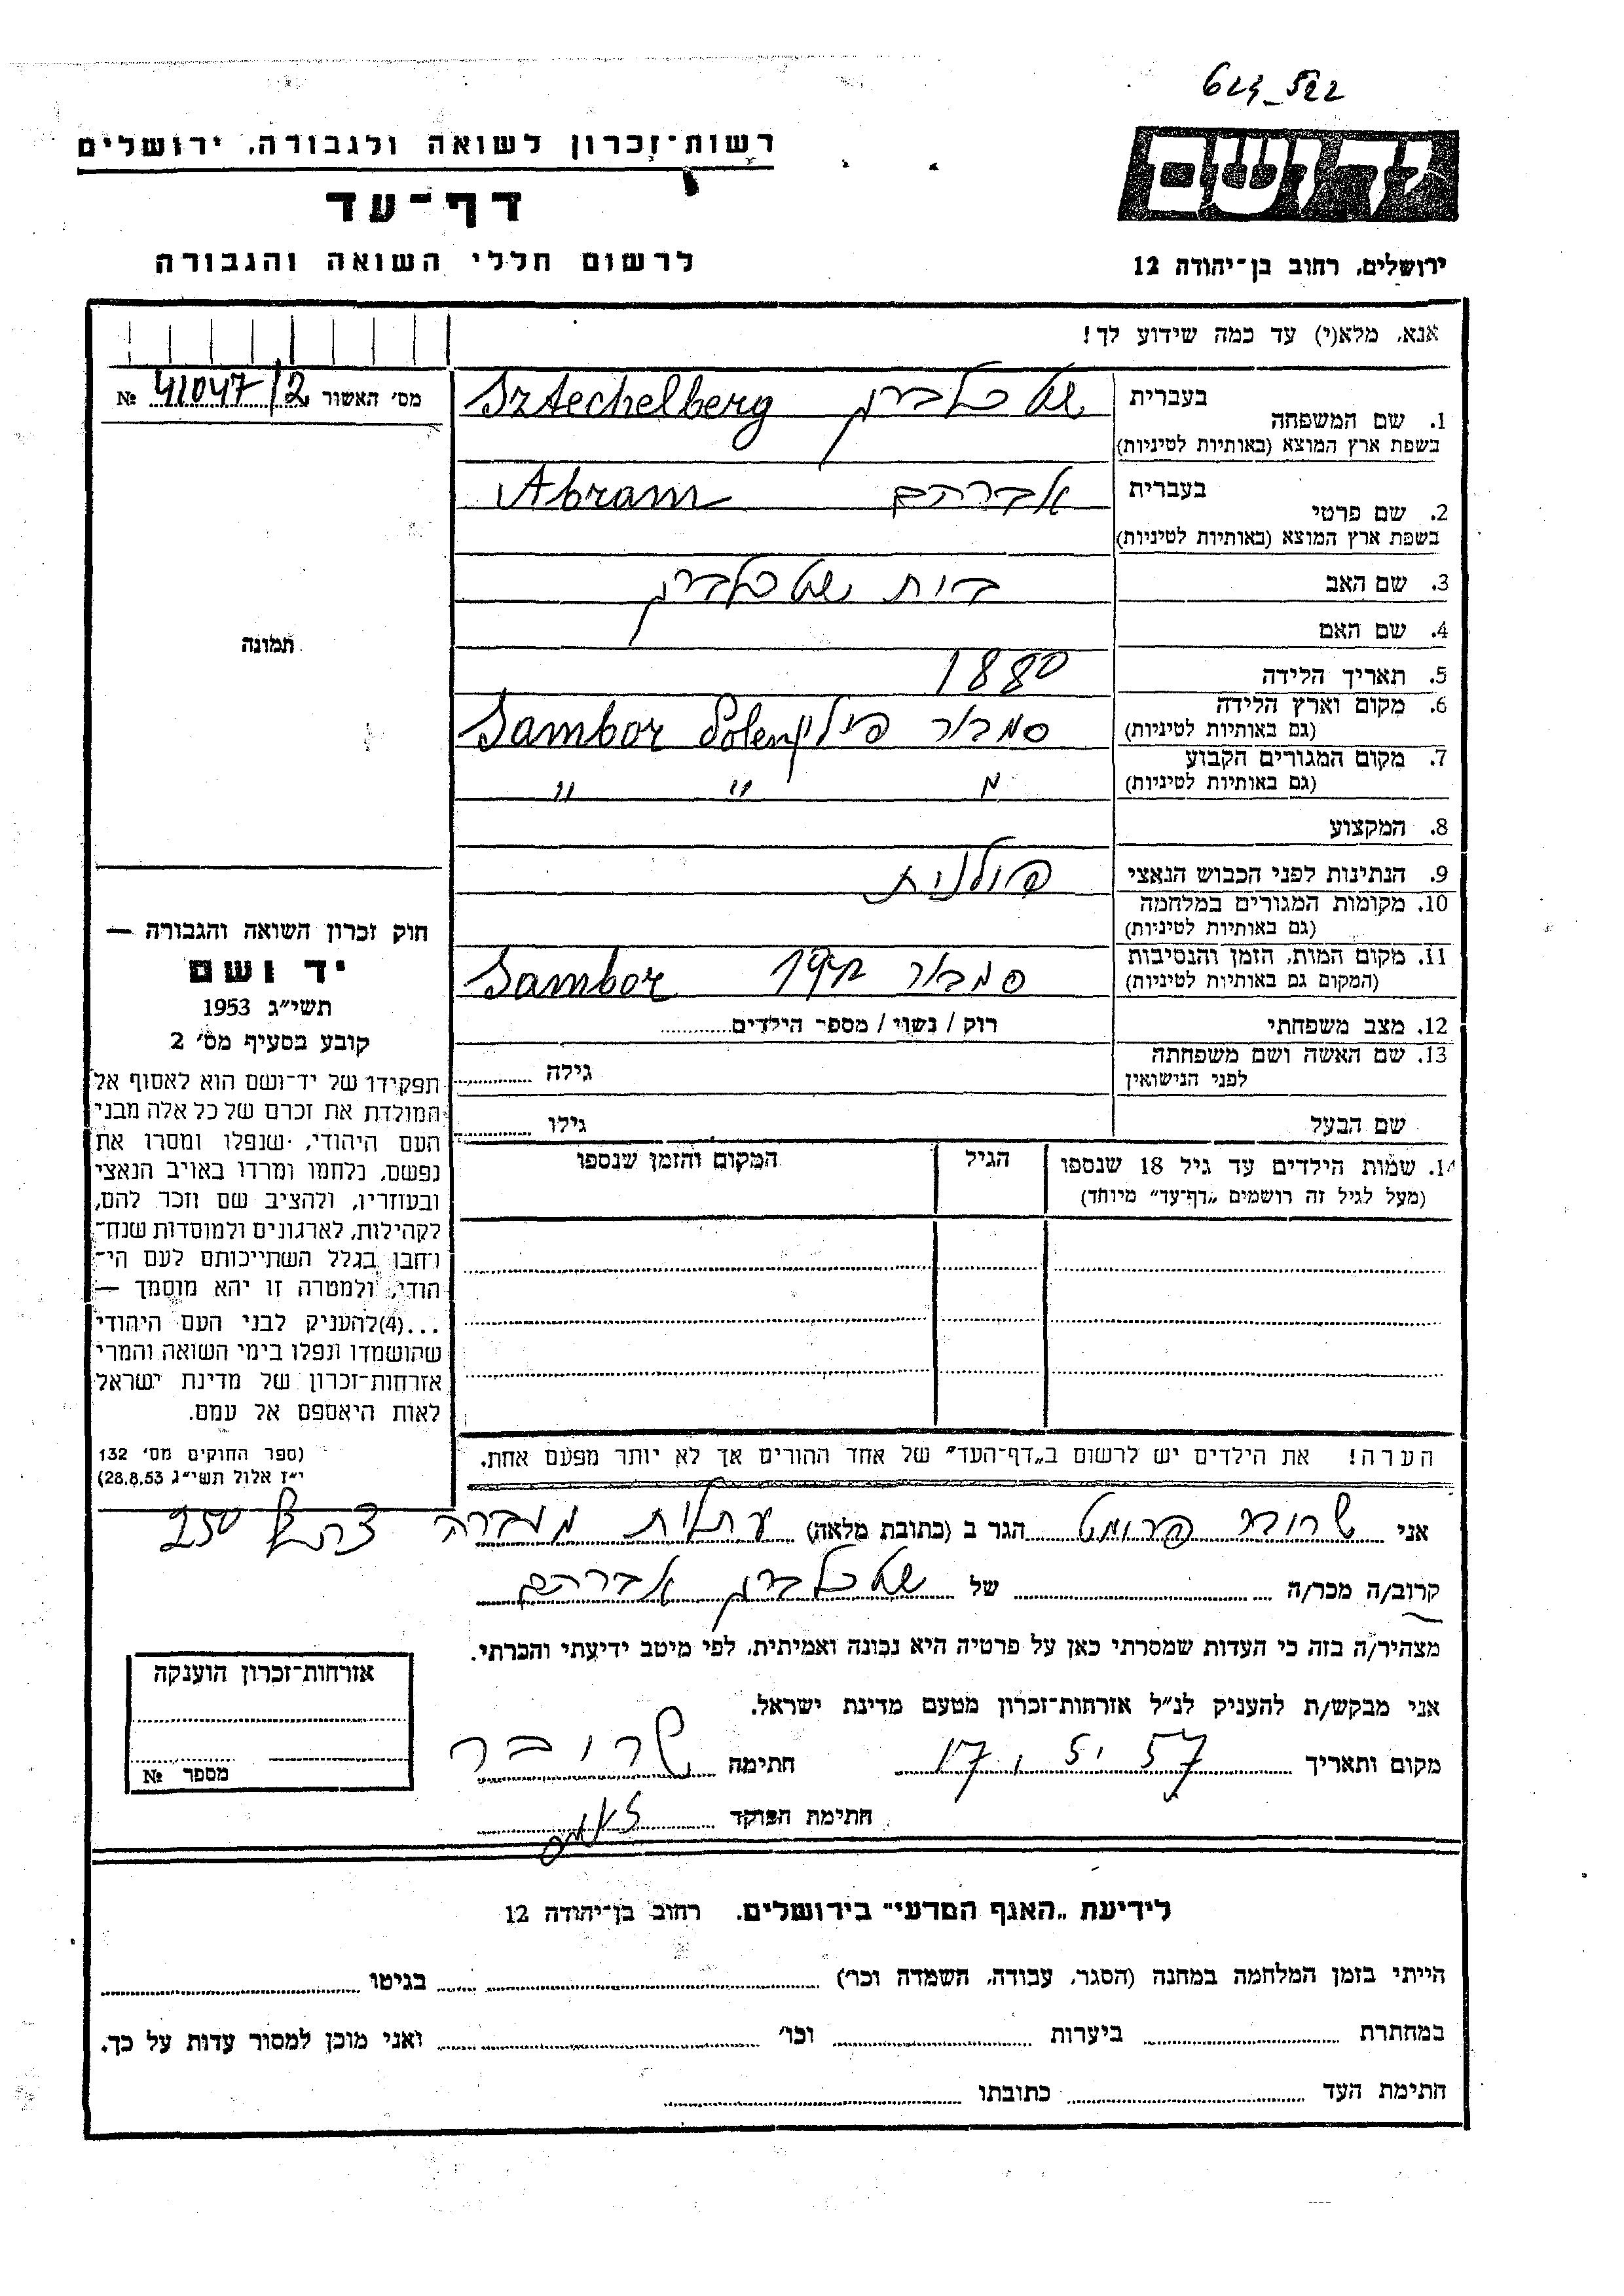 624-522
רשות־זכרון לשואה ולגבורה, ירושלים
יד ושם
דף־עד
לרשום חללי השואה והגבורה
ירושלים, רחוב בן־יהודה 12
אנא, מלא(י) עד כמה שידוע לך!
מס׳ האשור 41047/2 №
בעברית
1. שם המשפחה
בשפת ארץ המוצא (באותיות לטיניות)
שטכלברג Sztechelberg
בעברית
2. שם פרטי
בשפת ארץ המוצא (באותיות לטיניות)
אברהם Abram
3. שם האב
שטכלברג
4. שם האם
תמונה
5. תאריך הלידה 1880
6. מקום וארץ הלידה
(גם באותיות לטיניות)
סמבור פולין Polen Sambor
7. מקום המגורים הקבוע
(גם באותיות לטיניות)
" " "
8. המקצוע
9. הנתינות לפני הכבוש הנאצי פולנית
10. מקומות המגורים במלחמה
(גם באותיות לטיניות)
11. מקום המות, הזמן והנסיבות
(המקום גם באותיות לטיניות)
סמבור 1942 Sambor
12. מצב משפחתי רוק / נשוי / מספר הילדים
13. שם האשה ושם משפחתה
לפני הנישואין
גילה
שם הבעל גילו
14. שמות הילדים עד גיל 18 שנספו הגיל המקום והזמן שנספו
(מעל לגיל זה רושמים „דף־עד” מיוחד)
הערה! את הילדים יש לרשום ב„דף־העד” של אחד ההורים אך לא יותר מפעם אחת.
חוק זכרון השואה והגבורה —
יד ושם
תשי״ג 1953
קובע בסעיף מס׳ 2
תפקידו של יד־ושם הוא לאסוף אל
המולדת את זכרם של כל אלה מבני
העם היהודי, שנפלו ומסרו את
נפשם, נלחמו ומרדו באויב הנאצי
ובעוזריו, ולהציב שם וזכר להם,
לקהילות, לארגונים ולמוסדות שנח־
רבו בגלל השתייכותם לעם הי־
הודי, ולמטרה זו יהא מוסמך —
...(4)להעניק לבני העם היהודי
שהושמדו ונפלו בימי השואה והמרי
אזרחות־זכרון של מדינת ישראל
לאות היאספם אל עמם.
(ספר החוקים מס׳ 132
י״ז אלול תשי״ג 28.8.53)
אני שרובר הגר ב (כתובת מלאה) עתלית מעברה צריף 250
קרוב/ה מכר/ה של שטכלברג אברהם
מצהיר/ה בזה כי העדות שמסרתי כאן על פרטיה היא נכונה ואמיתית, לפי מיטב ידיעתי והכרתי.
אני מבקש/ת להעניק לנ״ל אזרחות־זכרון מטעם מדינת ישראל.
מקום ותאריך 17.5.57 חתימה שרובר
חתימת הפוקד
אזרחות־זכרון הוענקה
מספר №
לידיעת „האגף המדעי” בירושלים, רחוב בן־יהודה 12
הייתי בזמן המלחמה במחנה (הסגר, עבודה, השמדה וכו׳) בגיטו
במחתרת ביערות וכו׳ ואני מוכן למסור עדות על כך.
חתימת העד כתובתו